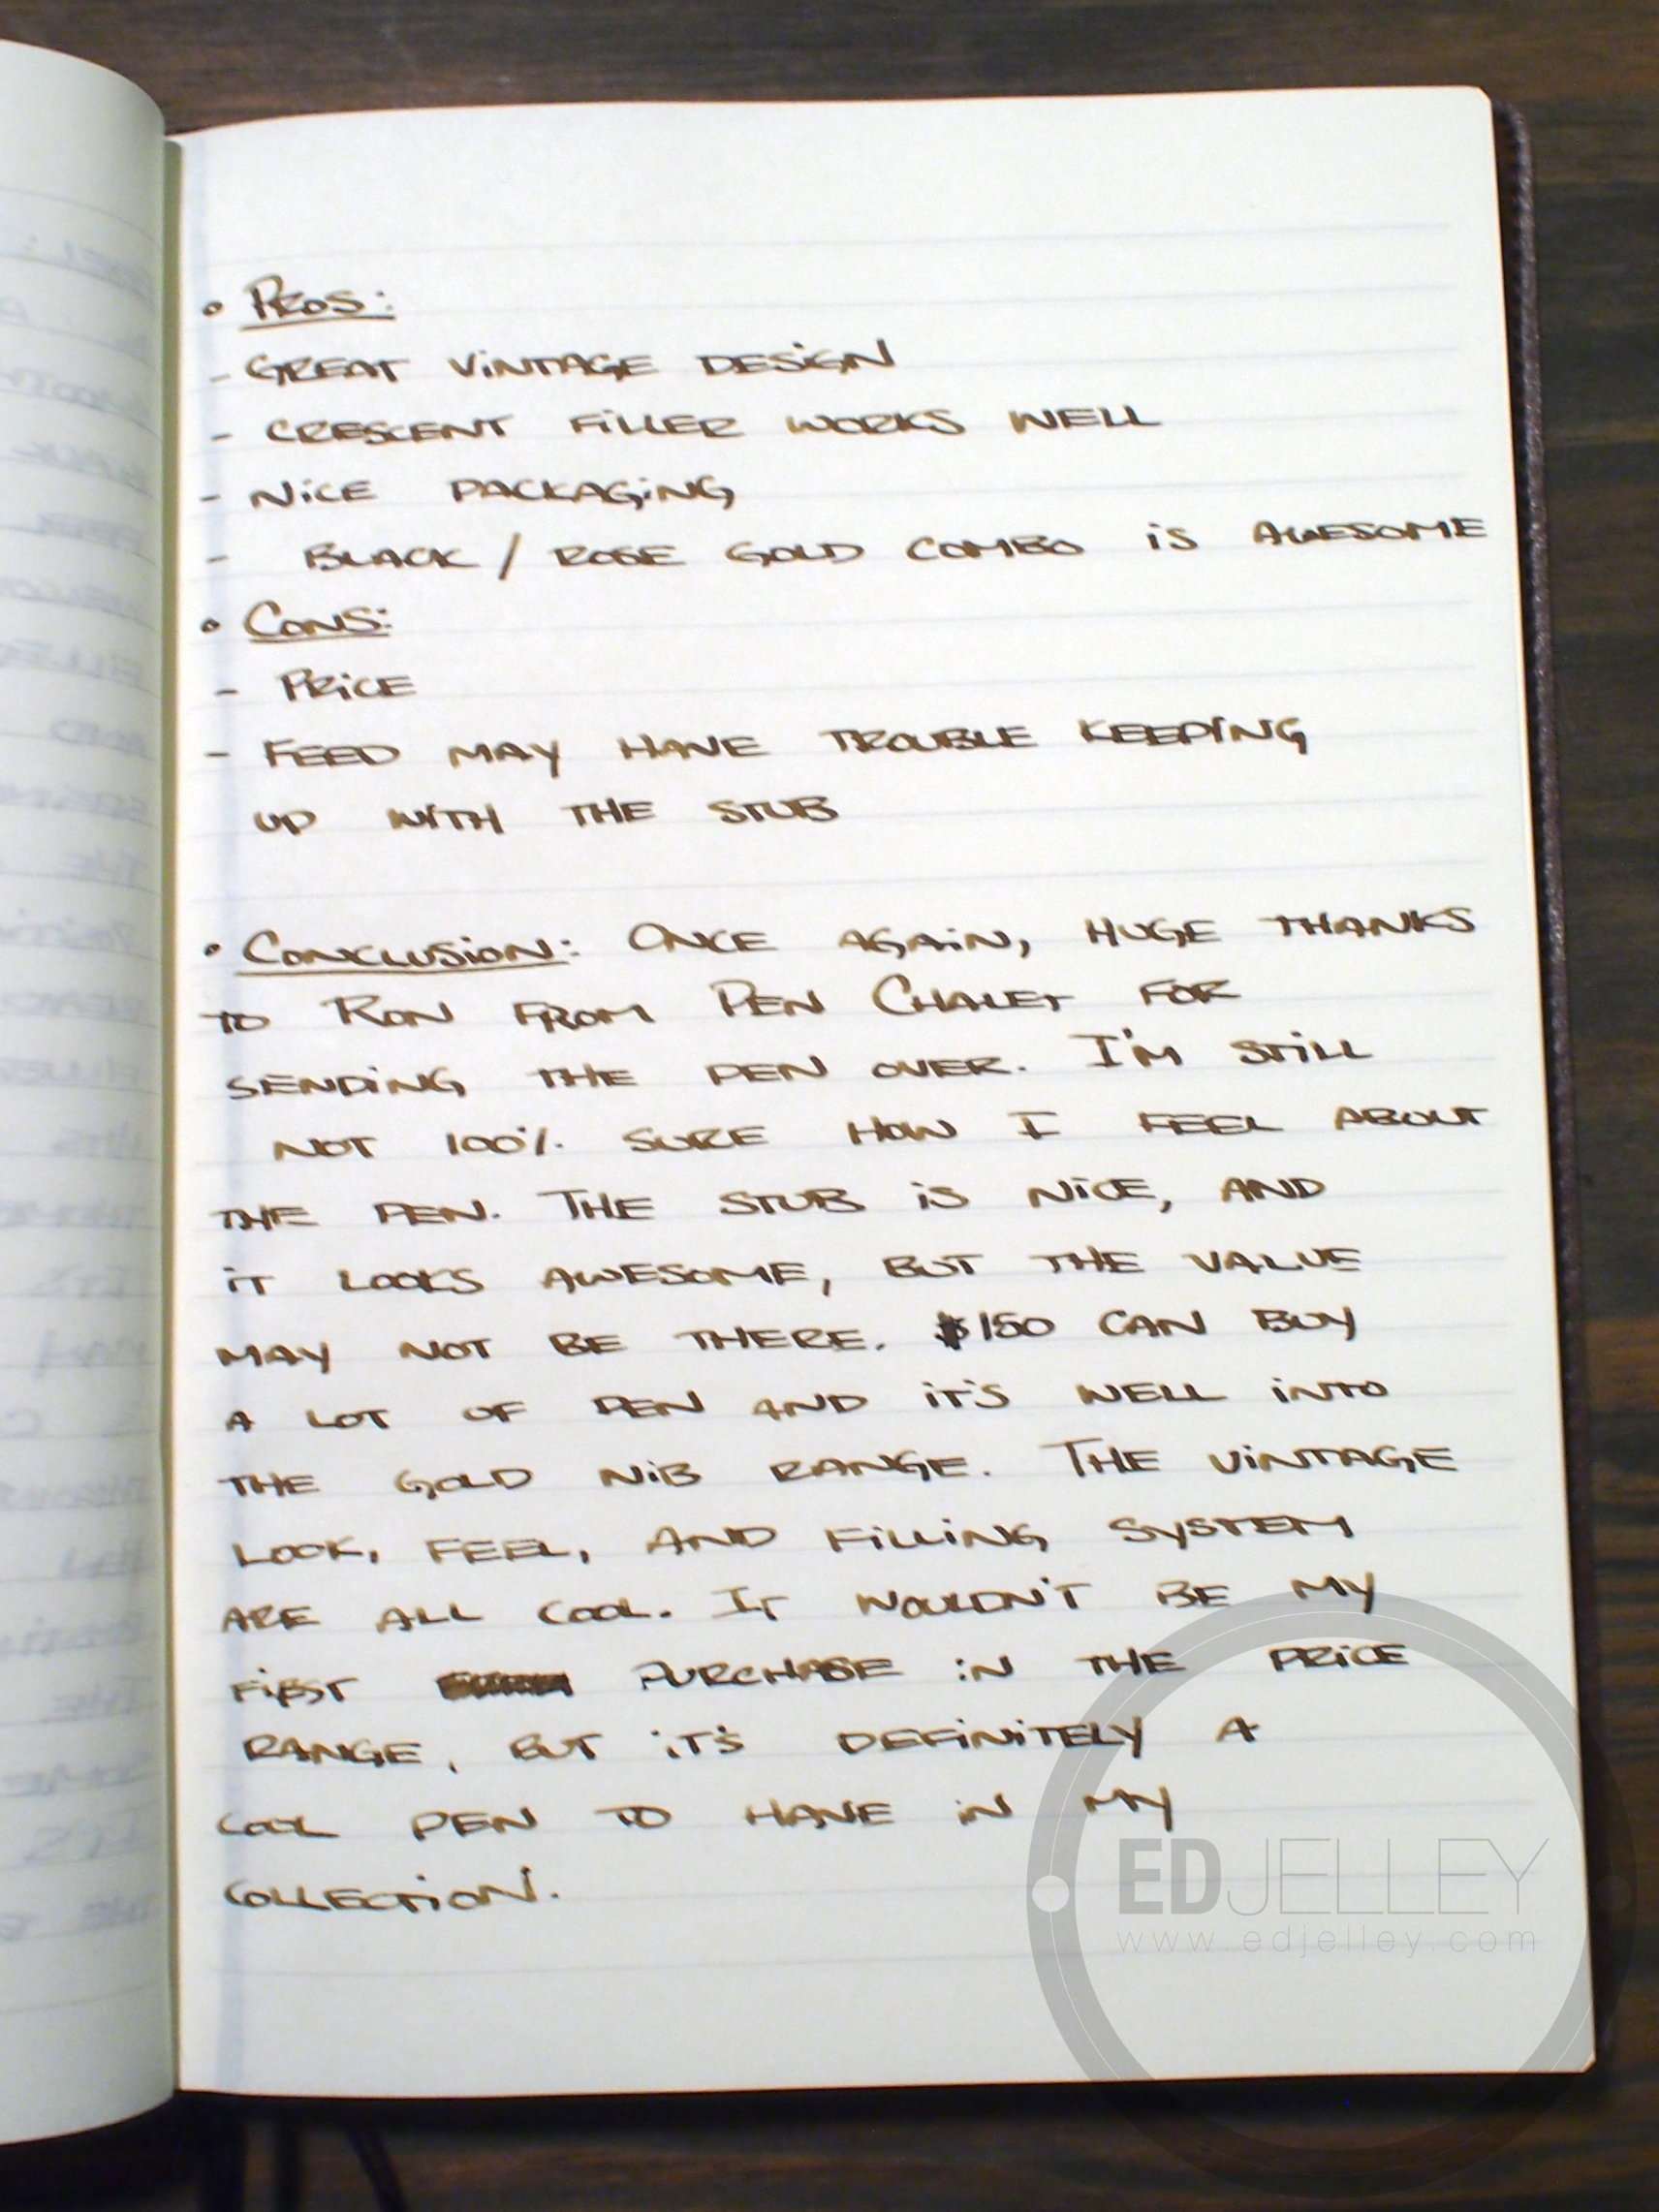 • Pros:
- GREAT ViNTAGE DESiGN
- CRESCENT FiLLER WORKS WELL
- NiCE PACKAGiNG
- BLACK / ROSE GOLD COMBO iS AWESOME
• Cons:
- PRiCE
- FEED MAY HAVE TROUBLE KEEPiNG
UP WiTH THE STUB
• Conclusion: ONCE AGAiN, HUGE THANKS
TO RON FROM PEN CHALET FOR
SENDiNG THE PEN OVER. I'M STiLL
NOT 100% SURE HOW I FEEL ABOUT
THE PEN. THE STUB iS NiCE, AND
iT LOOKS AWESOME, BUT THE VALUE
MAY NOT BE THERE. $150 CAN BUY
A LOT OF PEN AND iT'S WELL iNTO
THE GOLD NiB RANGE. THE ViNTAGE
LOOK, FEEL, AND FiLLiNG SYSTEM
ARE ALL COOL. IT WOULDN'T BE MY
FiRST PURCHASE iN THE PRiCE
RANGE, BUT iT'S DEFiNiTELY A
COOL PEN TO HAVE iN MY
COLLECTiON.
EDJELLEY
www.edjelley.com